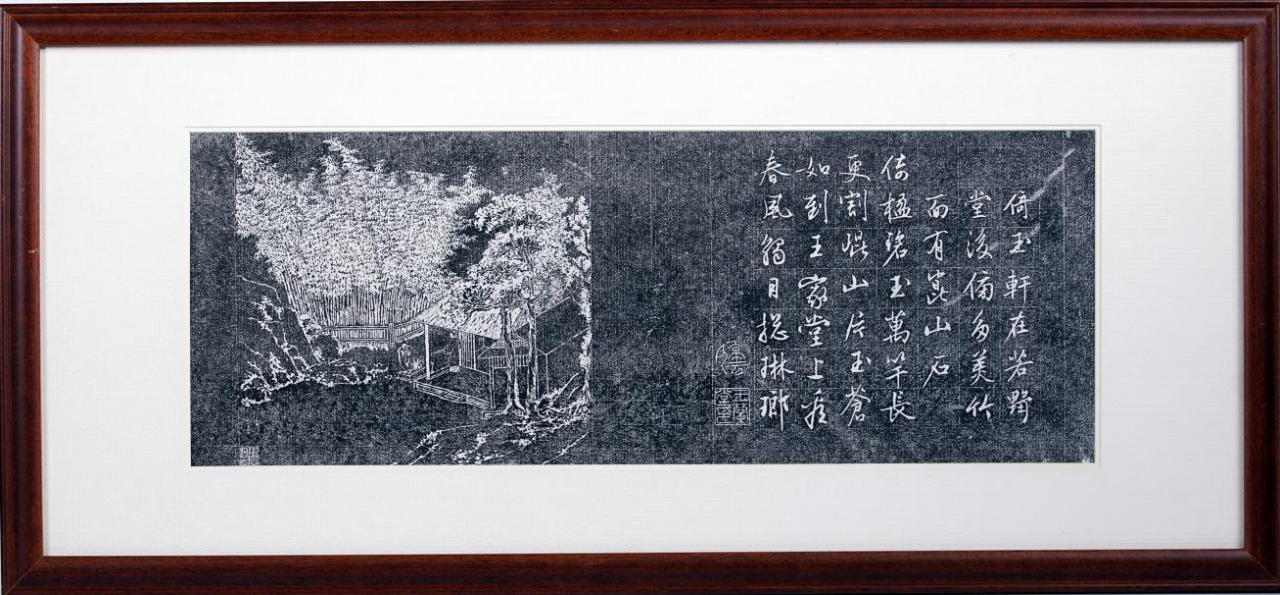 倚玉軒在若墅
堂後傍多美竹
面有崑山石
倚楹碧玉萬竿長
更割崐山片玉蒼
如到王家堂上看
春風觸目總琳瑯